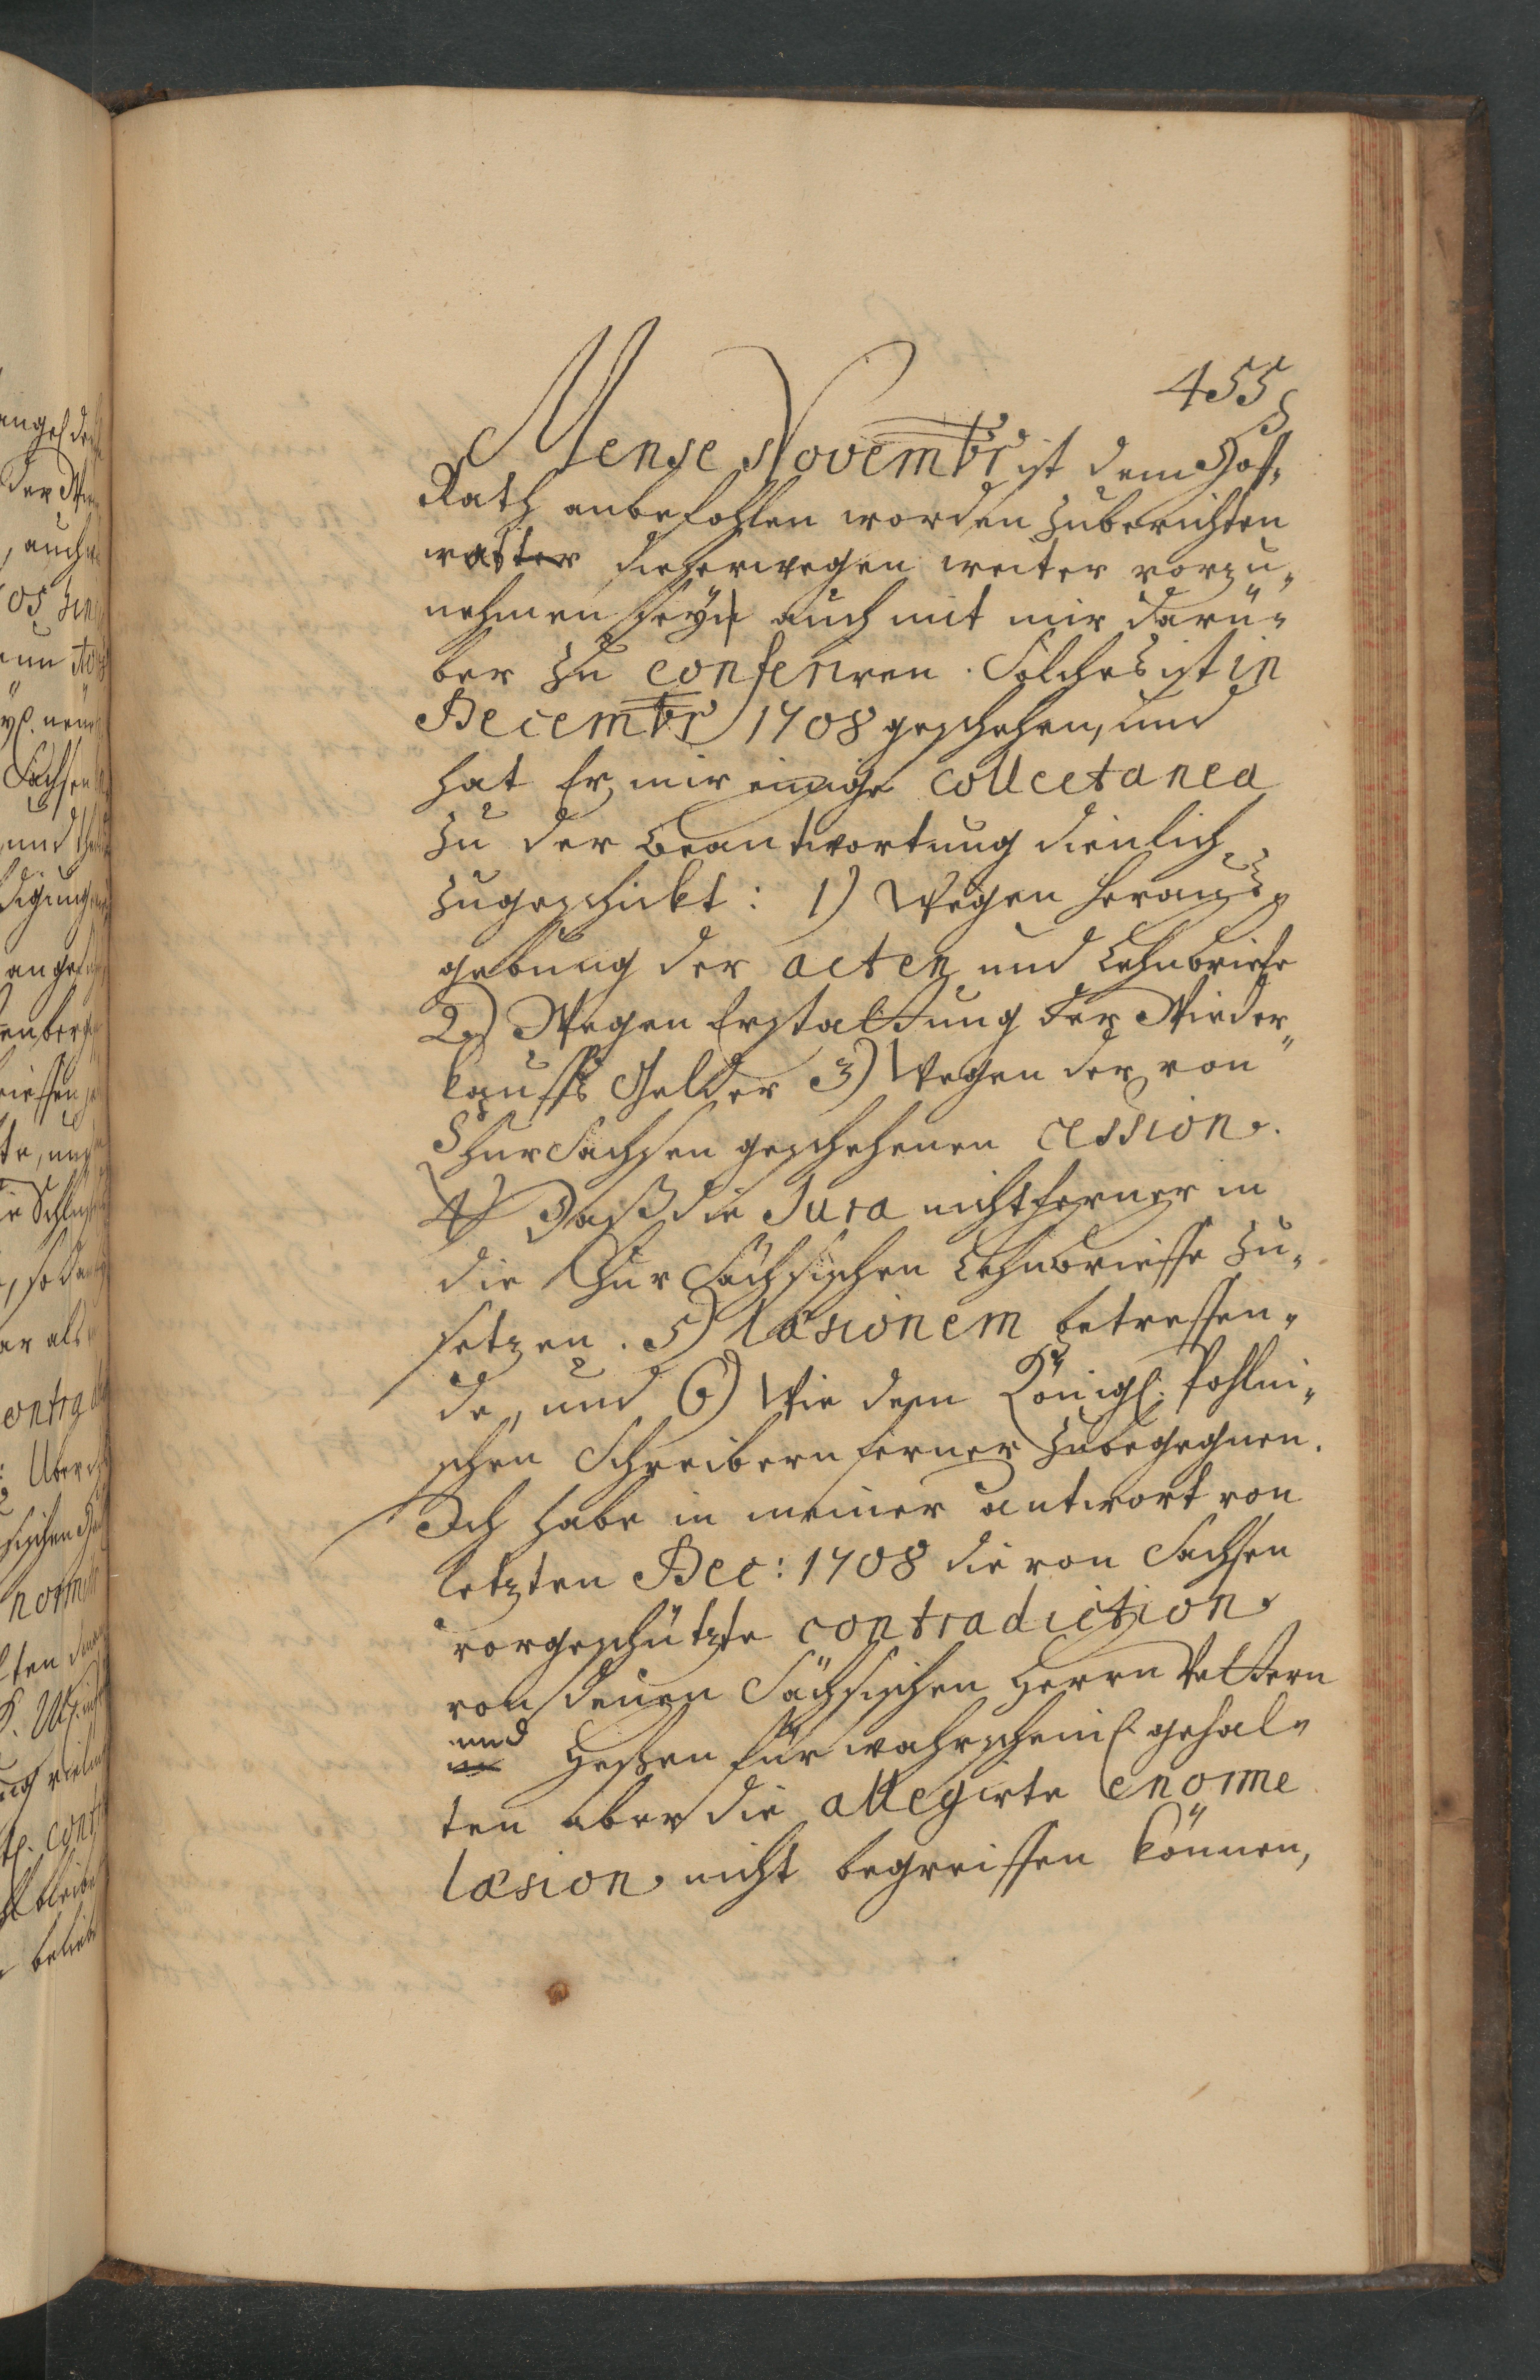 455
Mense Novembr ist dem Hoff-
Rath anbefohlen worden zuberichten
was dießerwegen weiter vorzu-
nehmen seÿ auch mit mir darü-
ber zu conferiren. Solches ist in
Decembr 1708 geschehen, und
hat Er mir einige collectanea
zu der beantwortung dienlich
zugeschickt: 1) Wegen Herauß-
gebung der acten und Lehnbriefe
2) Wegen Erstattung der Wieder-
kauffs Gelder 3) Wegen der von
Chur Sachsen geschehenen cession.
4) Daß die Jura nicht ferner in
die Chur Sächsischen Lehnbrieffe zu-
setzen. 5) læsionem betreffen-
de, und 6) Wie dem Königl: Pohlni-
schen Schreibern ferner zubegegnen.
Ich habe in meiner antwort von
letzten Dec: 1708 die von Sachsen
vorgeschützte contradiction
von denen Sächsischen Herrn Vettern
und Heßen für wahrscheinl gehal-
ten aber die allegirte enorme
læsion nicht begreiffen können,